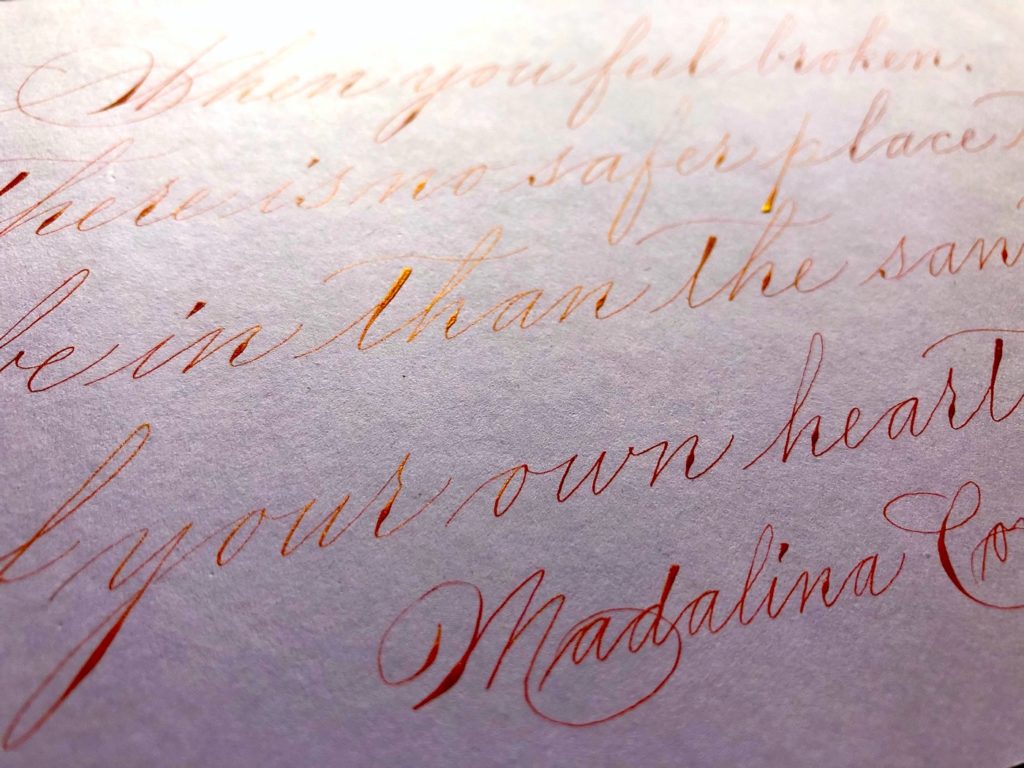 When you feel broken.
There is no safer place
be in than the san
f your own heart
Madalina Co